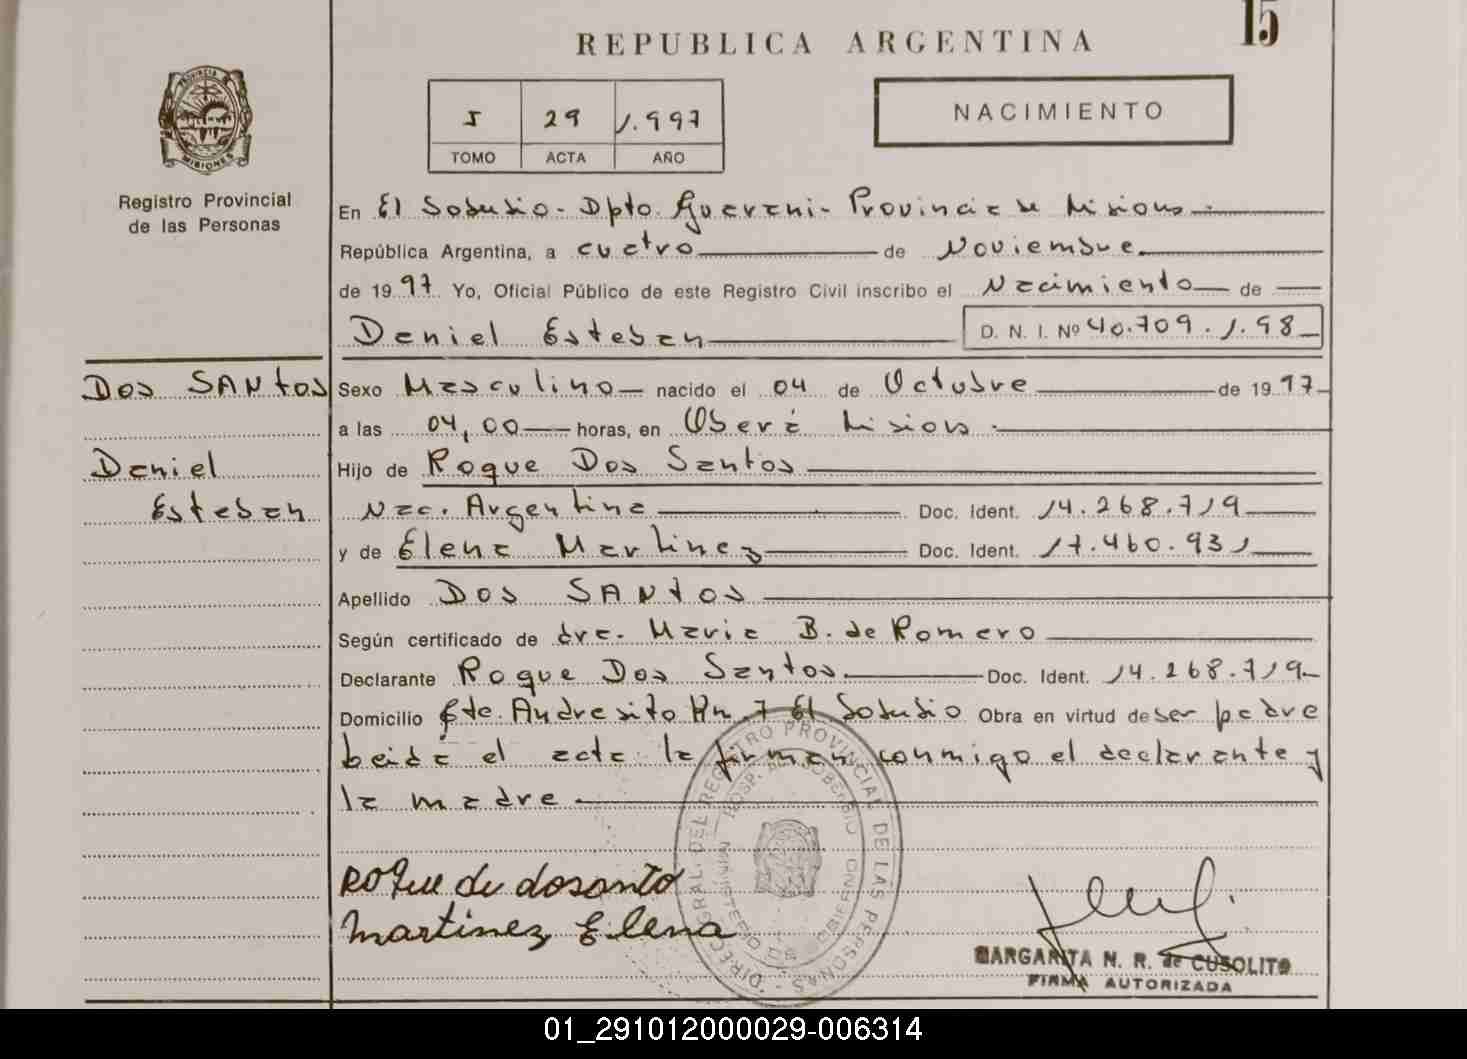 15
REPUBLICA ARGENTINA
PROVINCIA DE
MISIONES
Registro Provincial
de las Personas
5 29 1.997
TOMO ACTA AÑO
NACIMIENTO
En El Soberbio - Dpto. Guarani - Provincia de Misiones.
República Argentina, a cuatro de Noviembre
de 1997 Yo, Oficial Público de este Registro Civil inscribo el Nacimiento de
Daniel Esteban D. N. I. Nº 40.709.198
DOS SANTOS
Daniel
Esteban
Sexo Masculino nacido el 04 de Octubre de 1997
a las 04,00 horas, en Oberá Misiones.
Hijo de Roque Dos Santos
Nac. Argentina Doc. Ident. 14.268.719
y de Elena Martinez Doc. Ident. 17.460.931
Apellido DOS SANTOS
Según certificado de dra. Maria B. de Romero
Declarante Roque Dos Santos Doc. Ident. 14.268.719
Domicilio Pte. Andresito Km 7 El Soberbio Obra en virtud de ser padre
leida el acta la firman conmigo el declarante y
la madre
DIREC. GRAL. DEL REGISTRO PROVINCIAL DE LAS PERSONAS
HOSP. SOBERBIO
MINISTERIO DE GOBIERNO
Roque de dosanto
Martinez Elena
MARGARITA N. R. de CUSOLITO
FIRMA AUTORIZADA
01_291012000029-006314